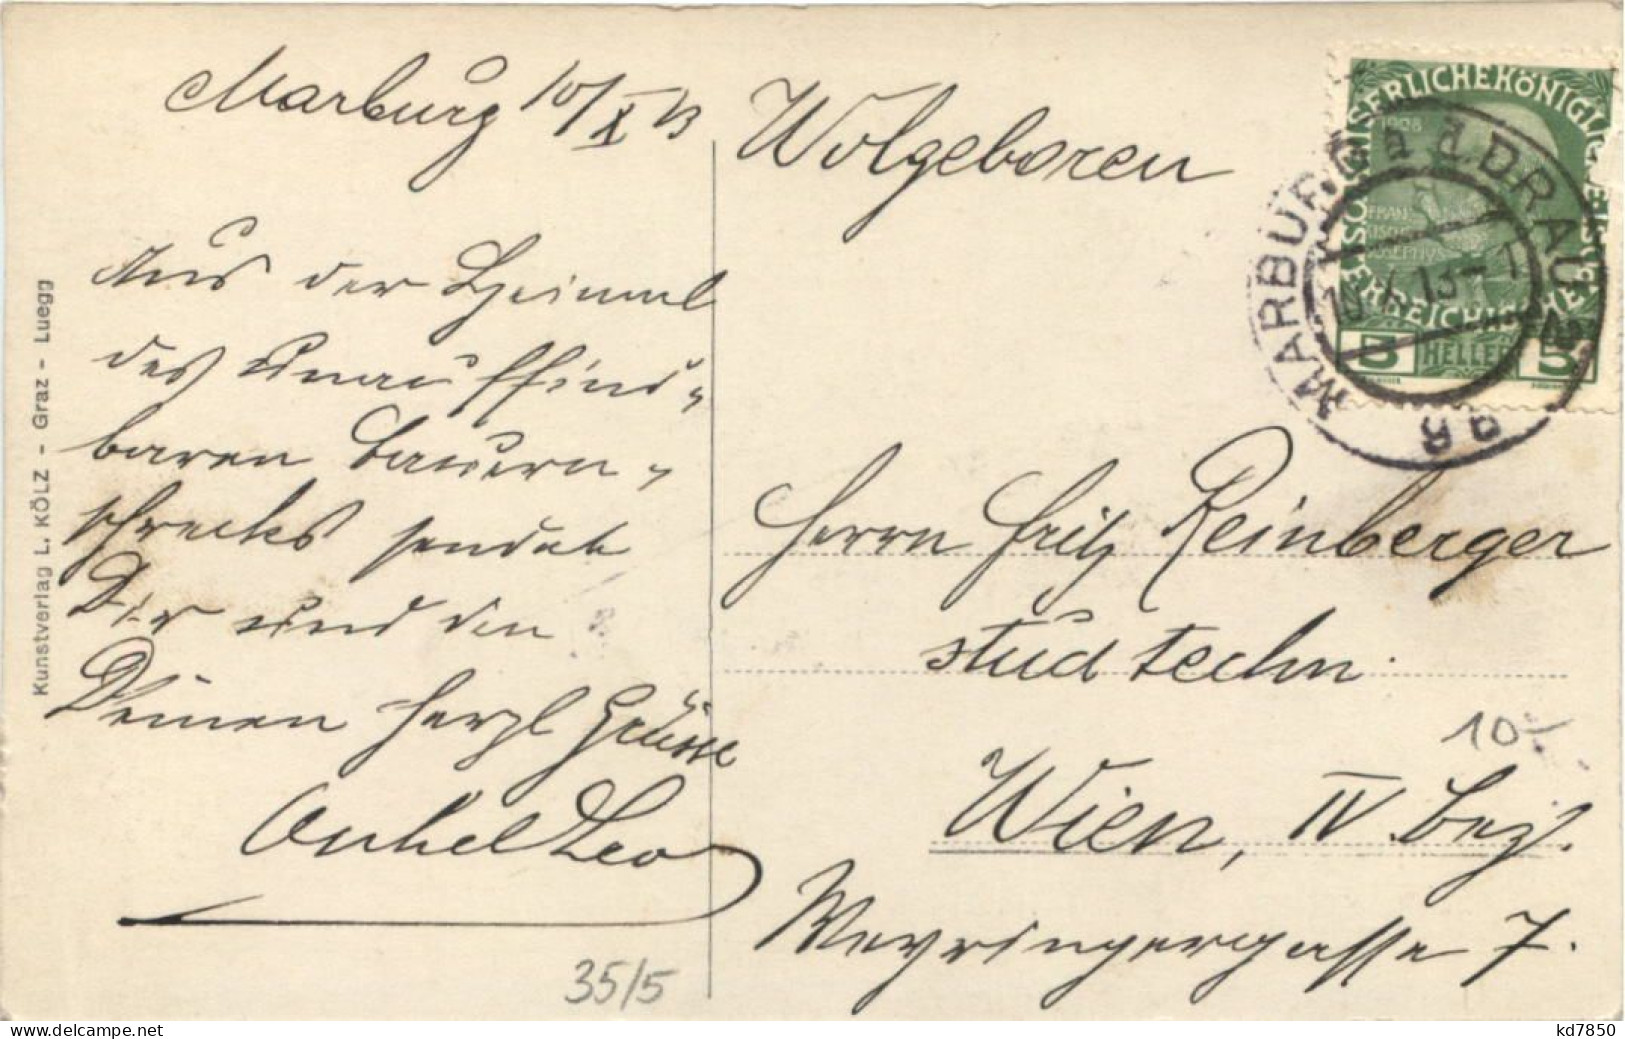 Marburg 10/X 13
Aus der Heimat
des unauffind-
baren Bauern-
schrecks sendet
Dir und den
Deinen herzl Grüsse
Onkel Leo
35/5
Wolgeboren
Herrn Fritz Reinberger
stud techn.
10
Wien, IV. Bez.
Weyringergasse 7.
Kunstverlag L. KÖLZ - Graz - Luegg
KAISERLICHE KÖNIGLICHE
ÖSTERREICHISCHE
1908
FRANZ
JOSEPH
5 HELLER 5
MARBURG a. d. DRAU
9B
delcampe.net
kd7850